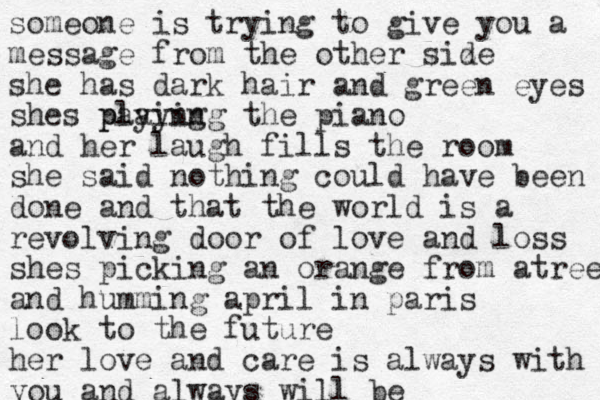 someone is trying to give you a
message from the other side
she has dark hair and green eyes
shes playing the piano
and her laugh fills the room
she said nothing could have been
done and that the world is a
revolving door of love and loss
shes picking an orange from atree
and humming april in paris
look to the future
her love and care is always with
you and always will be